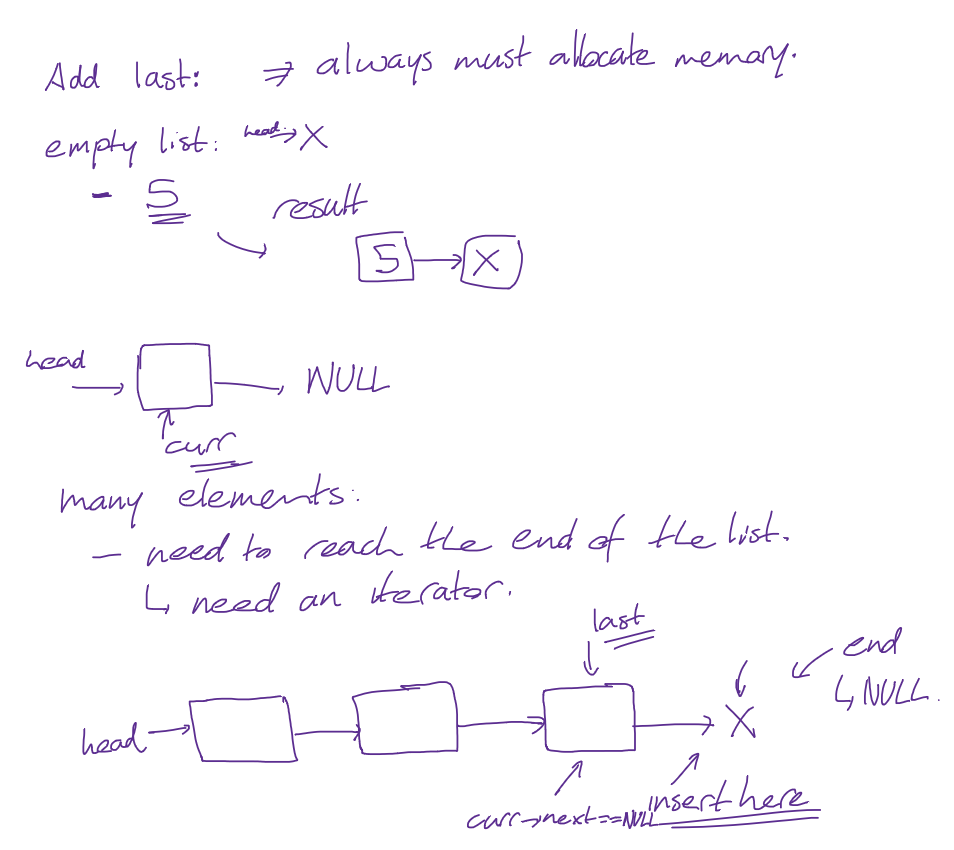 Add last: ⇒ always must allocate memory.
empty list: head → X
- 5
result
5 → X
head → → NULL
curr
many elements:
- need to reach the end of the list.
↳ need an iterator.
last
end
↳ NULL.
head → → → → X
insert here
curr→next==NULL